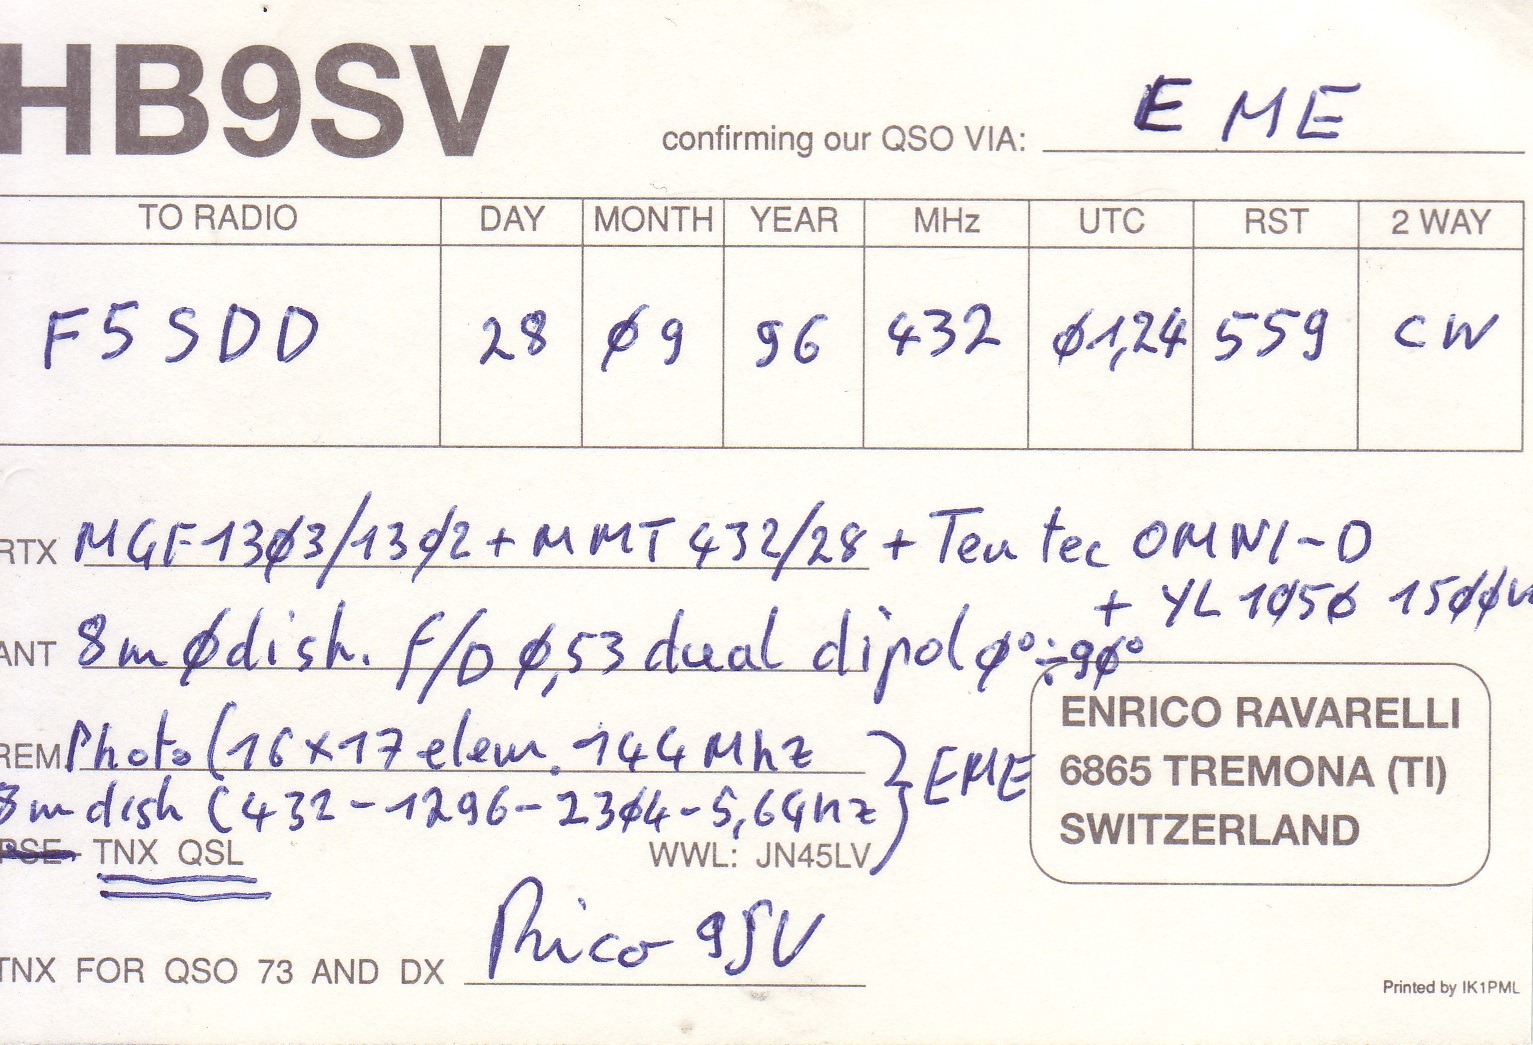 HB9SV
confirming our QSO VIA: EME
TO RADIO DAY MONTH YEAR MHz UTC RST 2 WAY
F5SDD 28 Ø9 96 432 Ø1,24 559 CW
RTX MGF13Ø3/13Ø2 + MMT 432/28 + Ten tec OMNI-D
+ YL 1Ø5Ø 15ØØW
ANT 8m Ø dish. F/D Ø,53 dual dipol Ø° ÷ 9Ø°
REM Photo (16x17 elem. 144 Mhz
8m dish (432-1296-23Ø4-5,6GHz } EME
PSE TNX QSL WWL: JN45LV
ENRICO RAVARELLI
6865 TREMONA (TI)
SWITZERLAND
TNX FOR QSO 73 AND DX Rico 9SV
Printed by IK1PML